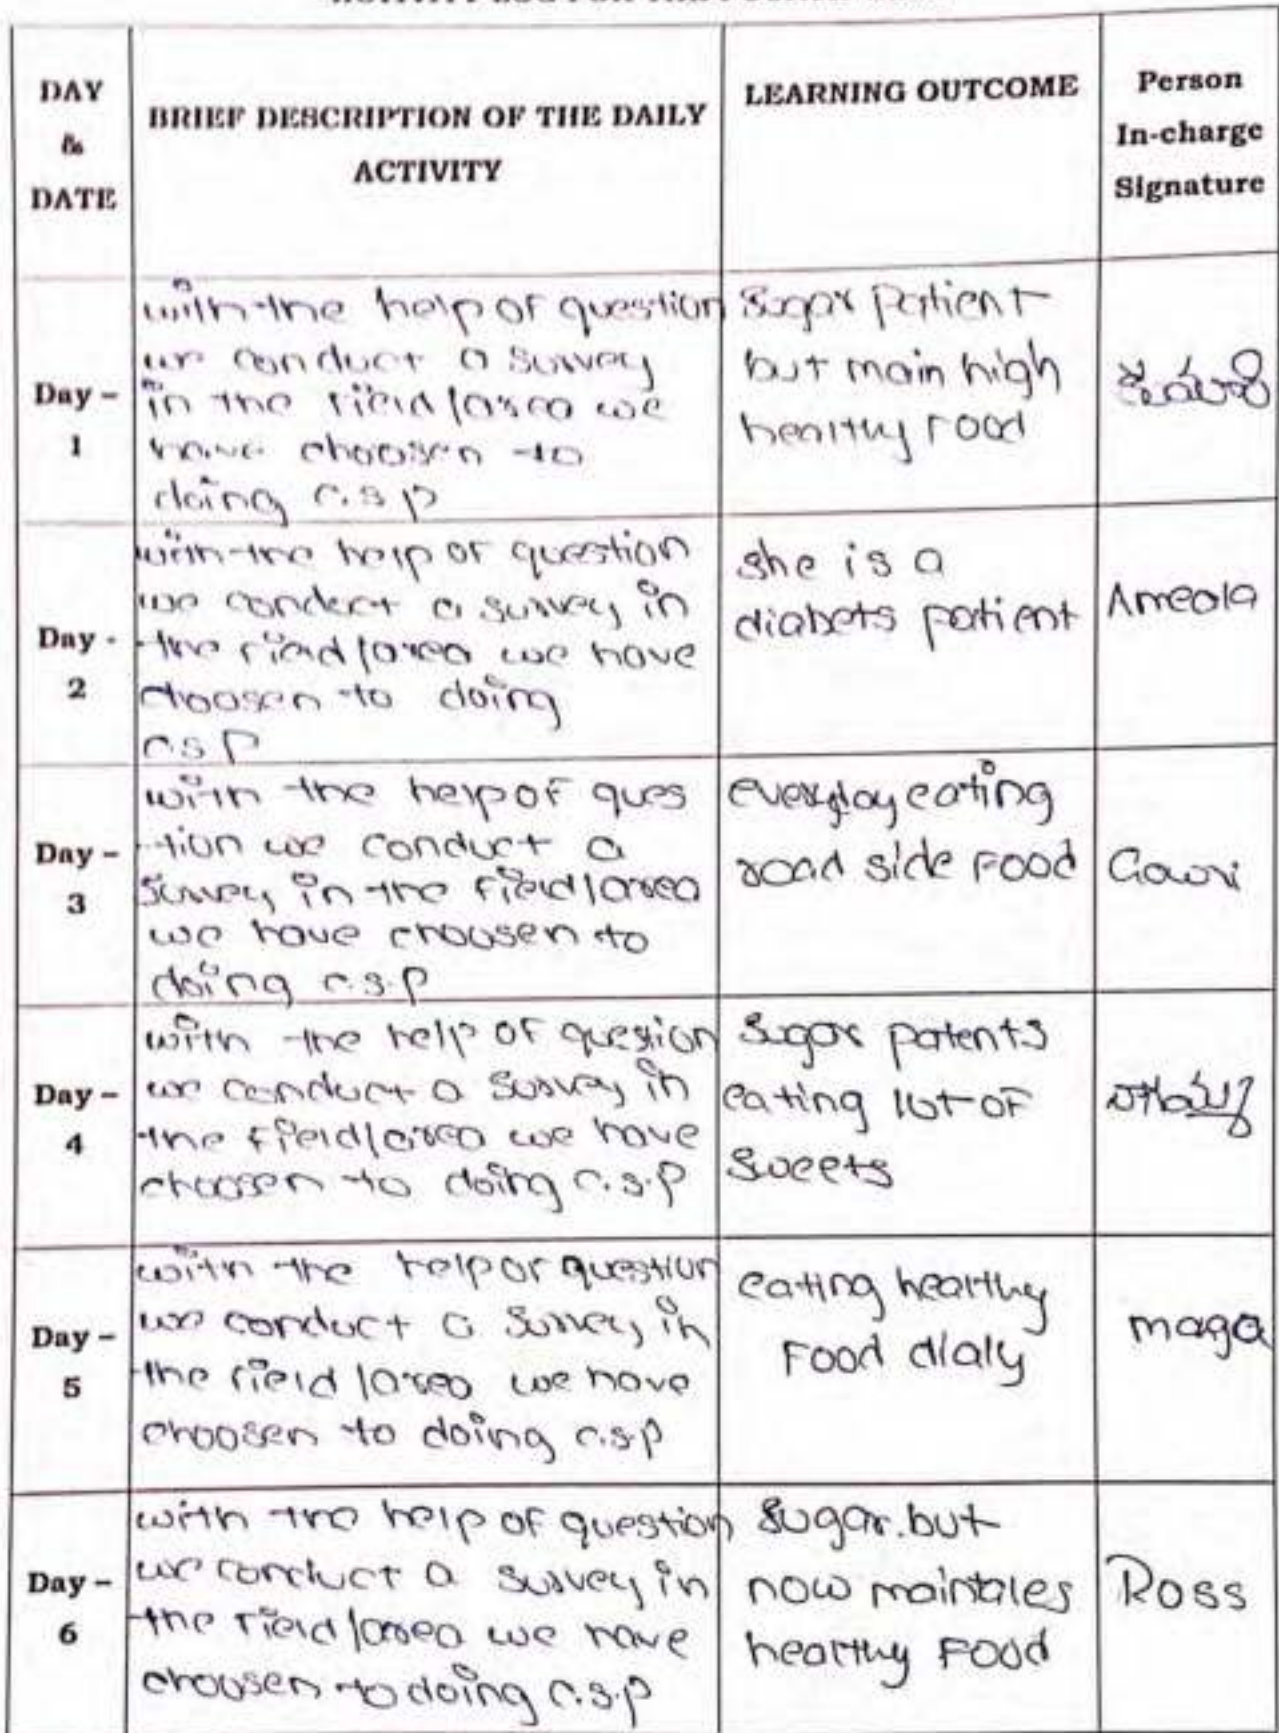 DAY
&
DATE
BRIEF DESCRIPTION OF THE DAILY
ACTIVITY
LEARNING OUTCOME
Person
In-charge
Signature
Day –
1
with the help of question
we conduct a survey
in the field/area we
have choosen to
doing c.s.p
Sugar patient
but main high
healthy food
Day -
2
with the help of question
we conduct a survey in
the field/area we have
choosen to doing
c.s.p
she is a
diabets patient
Ameola
Day –
3
with the help of ques
tion we conduct a
survey in the field/area
we have choosen to
doing c.s.p
everyday eating
road side food
Gowri
Day –
4
with the help of question
we conduct a survey in
the field/area we have
choosen to doing c.s.p
Sugar patents
eating lot of
sweets
Day –
5
with the help of question
we conduct a survey in
the field/area we have
choosen to doing c.s.p
eating healthy
food dialy
maga
Day –
6
with the help of question
we conduct a survey in
the field/area we have
choosen to doing c.s.p
Sugar. but
now maintales
healthy food
Ross